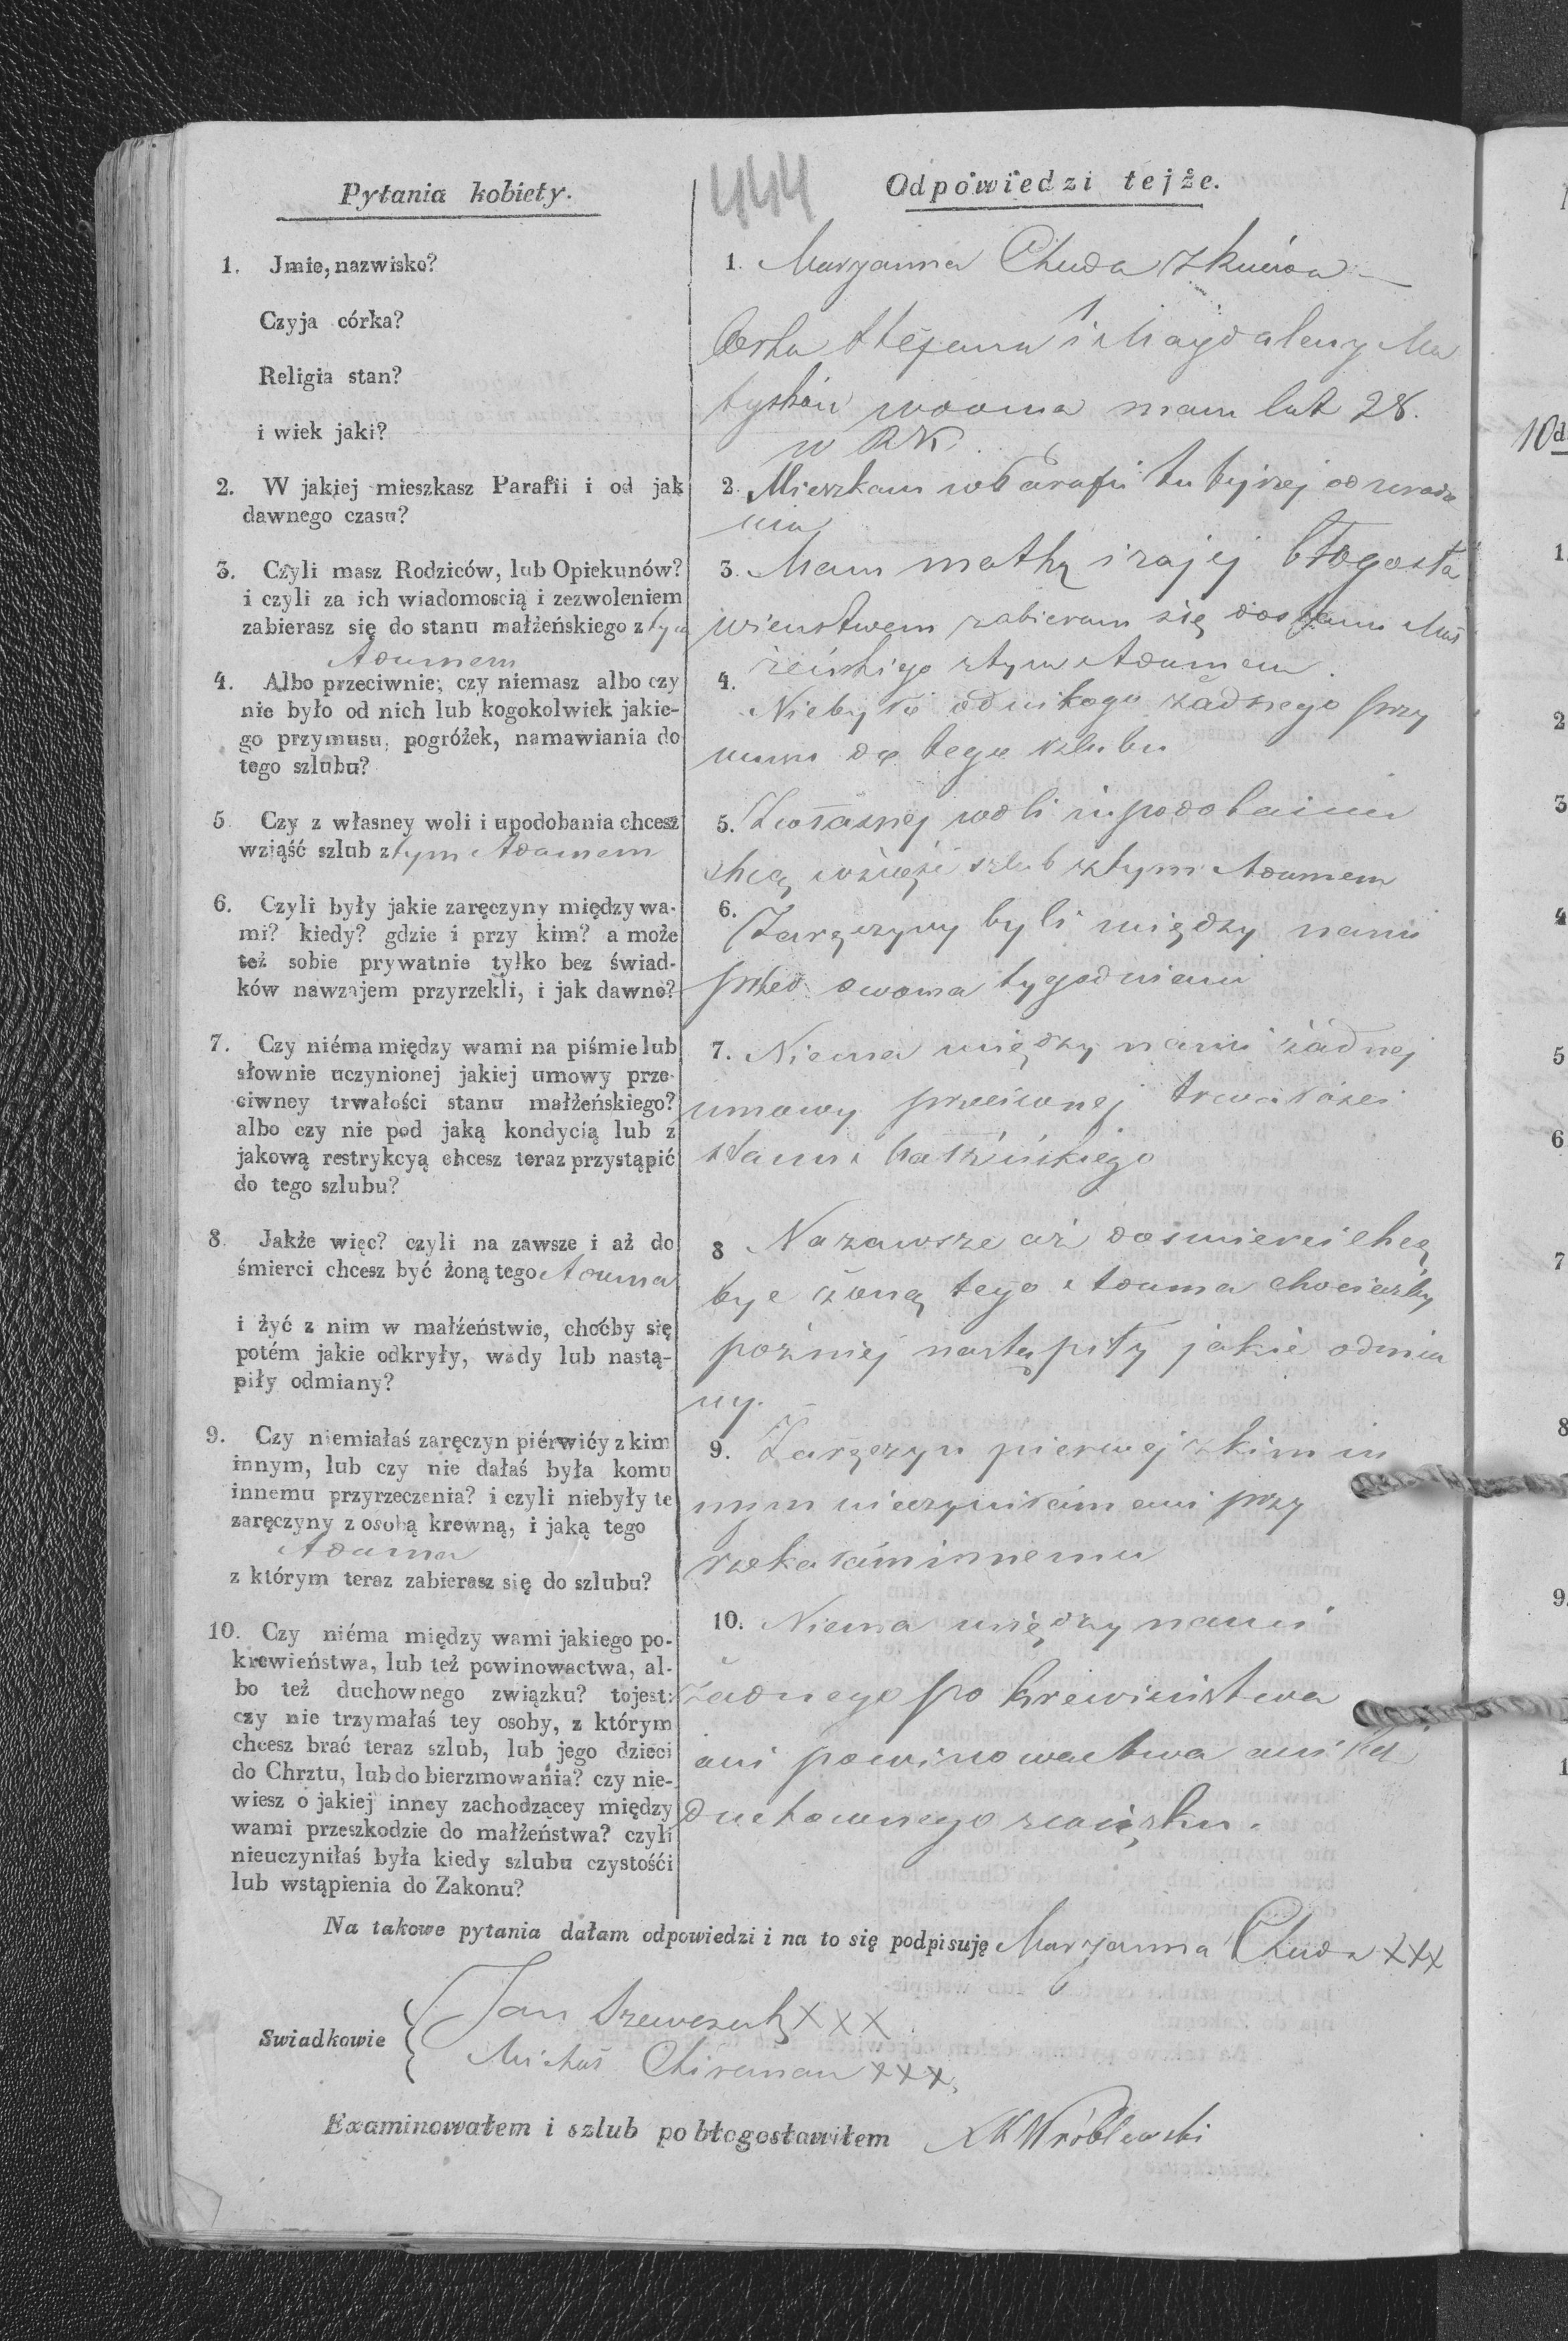 444
Pytania kobiety.
1. Jmie, nazwisko?
Czyja córka?
Religia stan?
i wiek jaki?
2. W jakiej mieszkasz Parafii i od jak
dawnego czasu?
3. Czyli masz Rodziców, lub Opiekunów?
i czyli za ich wiadomoscią i zezwoleniem
zabierasz się do stanu małżeńskiego z tym
Adamem
4. Albo przeciwnie; czy niemasz albo czy
nie było od nich lub kogokolwiek jakie-
go przymusu, pogróżek, namawiania do
tego szlubu?
5 Czy z własney woli i upodobania chcesz
wziąść szlub z tym Adamem
6. Czyli były jakie zaręczyny między wa-
mi? kiedy? gdzie i przy kim? a może
też sobie prywatnie tylko bez świad-
ków nawzajem przyrzekli, i jak dawno?
7. Czy niéma między wami na piśmie lub
słownie uczynionej jakiej umowy prze-
ciwney trwałości stanu małżeńskiego?
albo czy nie pod jaką kondycią lub z
jakową restrykcyą chcesz teraz przystąpić
do tego szlubu?
8 Jakże więc? czyli na zawsze i aż do
śmierci chcesz być żoną tego Adama
i żyć z nim w małżeństwie, choćby się
potém jakie odkryły, wady lub nastą-
piły odmiany?
9. Czy niemiałaś zaręczyn piérwićy z kim
innym, lub czy nie dałaś była komu
innemu przyrzeczenia? i czyli niebyły te
zaręczyny z osobą krewną, i jaką tego
Adama
z którym teraz zabierasz się do szlubu?
10. Czy niéma między wami jakiego po-
krewieństwa, lub też powinowactwa, al-
bo też duchownego związku? tojest:
czy nie trzymałaś tey osoby, z którym
chcesz brać teraz szlub, lub jego dzieci
do Chrztu, lub do bierzmowania? czy nie-
wiesz o jakiej inney zachodzącey między
wami przeszkodzie do małżeństwa? czyli
nieuczyniłaś była kiedy szlubu czystośći
lub wstąpienia do Zakonu?
Odpowiedzi tejże.
1. Maryanna Chuda z
Corka Stefana i Magdaleny Ma
tysków wdowa mam lat 28.
w RK.
2. Mieszkam w Parafii tutejszej od urodze
nia
3. Mam matkę i za jej błogosła
wieństwem zabieram się do stanu Mał
żeńskiego z tym Adamem.
4. Niebyło od nikogo żadnego przy
musu do tego szlubu
5. Z własnej woli i upodobania
chcę wziąść szlub z tym Adamem
6. Zaręczyny byli między nami
przed dwoma tygodniami
7. Niema między nami żadnej
umowy przeciwnej trwałości
stanu Małżeńskiego
8 Na zawsze aż do śmierci chcę
być żoną tego Adama chociażby
poźniej nastąpiły jakie odmia
ny.
9. Zaręczyn pierwej z kim in
nym nieczyniłam ani przy
rzekałam innemu
10. Niema między nami
żadnego pokrewieństwa
ani powinowactwa ani też
duchownego związku.
Na takowe pytania dałam odpowiedzi i na to się podpisuję Maryanna Chuda XXX
Swiadkowie
Jan Szewczuk XXX
Michał XXX
Examinowałem i szlub pobłogosławiłem XK Wróblewski
10d
1.
2
3
4
5
6
7
8
9.
1